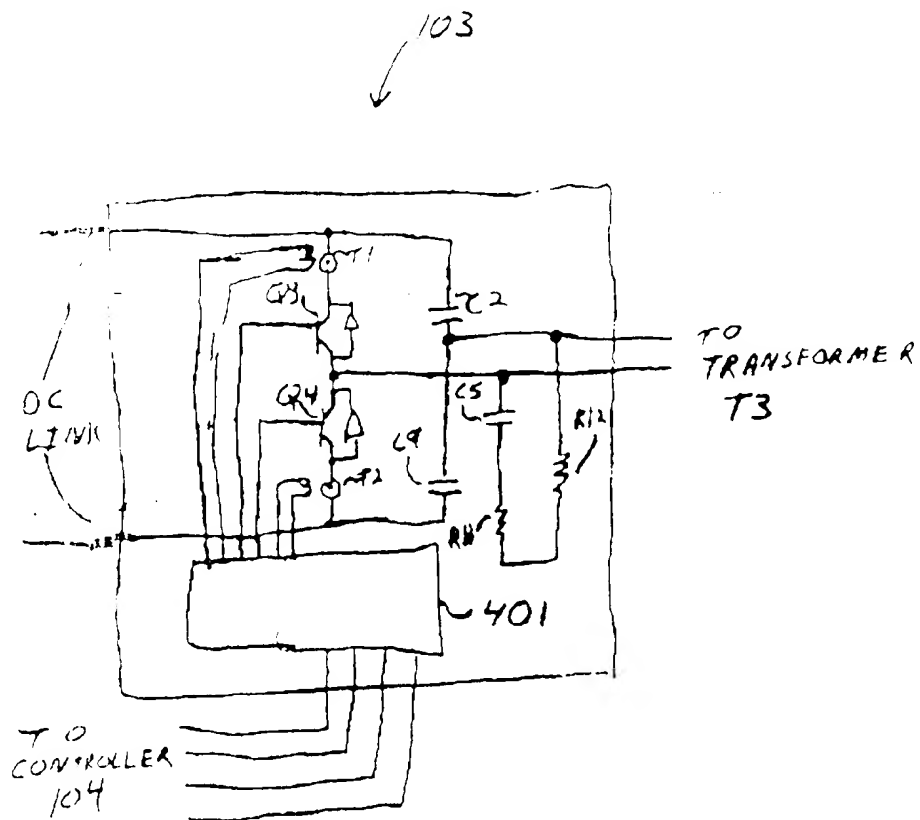 103
T1
Q3
C2
TO
TRANSFORMER
T3
C5
R12
Q4
DC
LINK
C9
T2
R11
401
TO
CONTROLLER
104